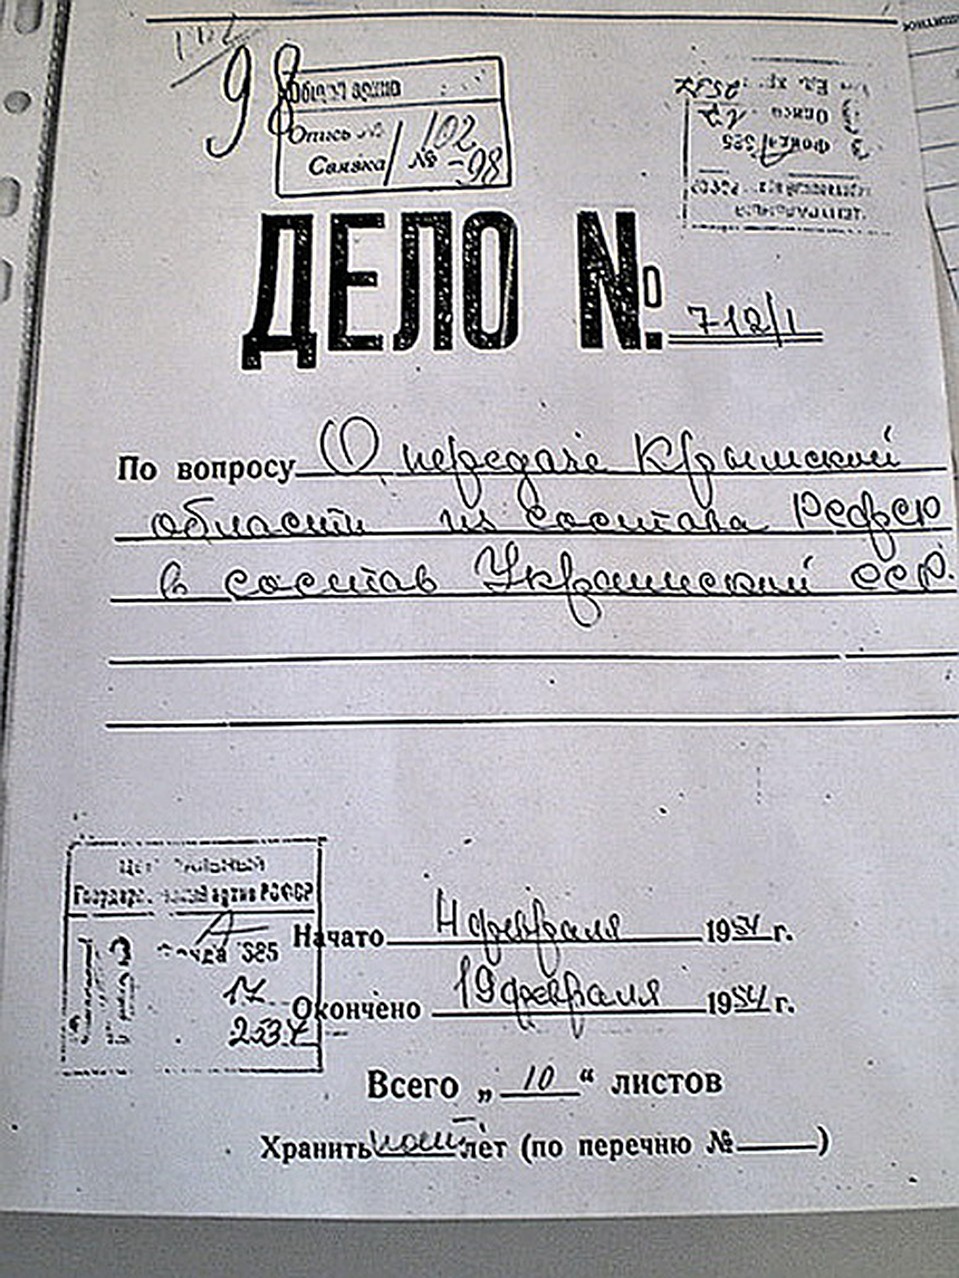 98
Общий архив
Опись № 102
Связка № -98
Ед. хр.
Опись 17
Фонд 385
ДЕЛО №. 712/1
По вопросу О передаче Крымской
области из состава РСФСР
в состав Украинской ССР.
Государс архив РСФСР
Фонда 385
17
2537
Начато 4 февраля 1954 г.
Окончено 19 февраля 1954 г.
Всего „ 10 “ листов
Хранить пост лет (по перечню № )